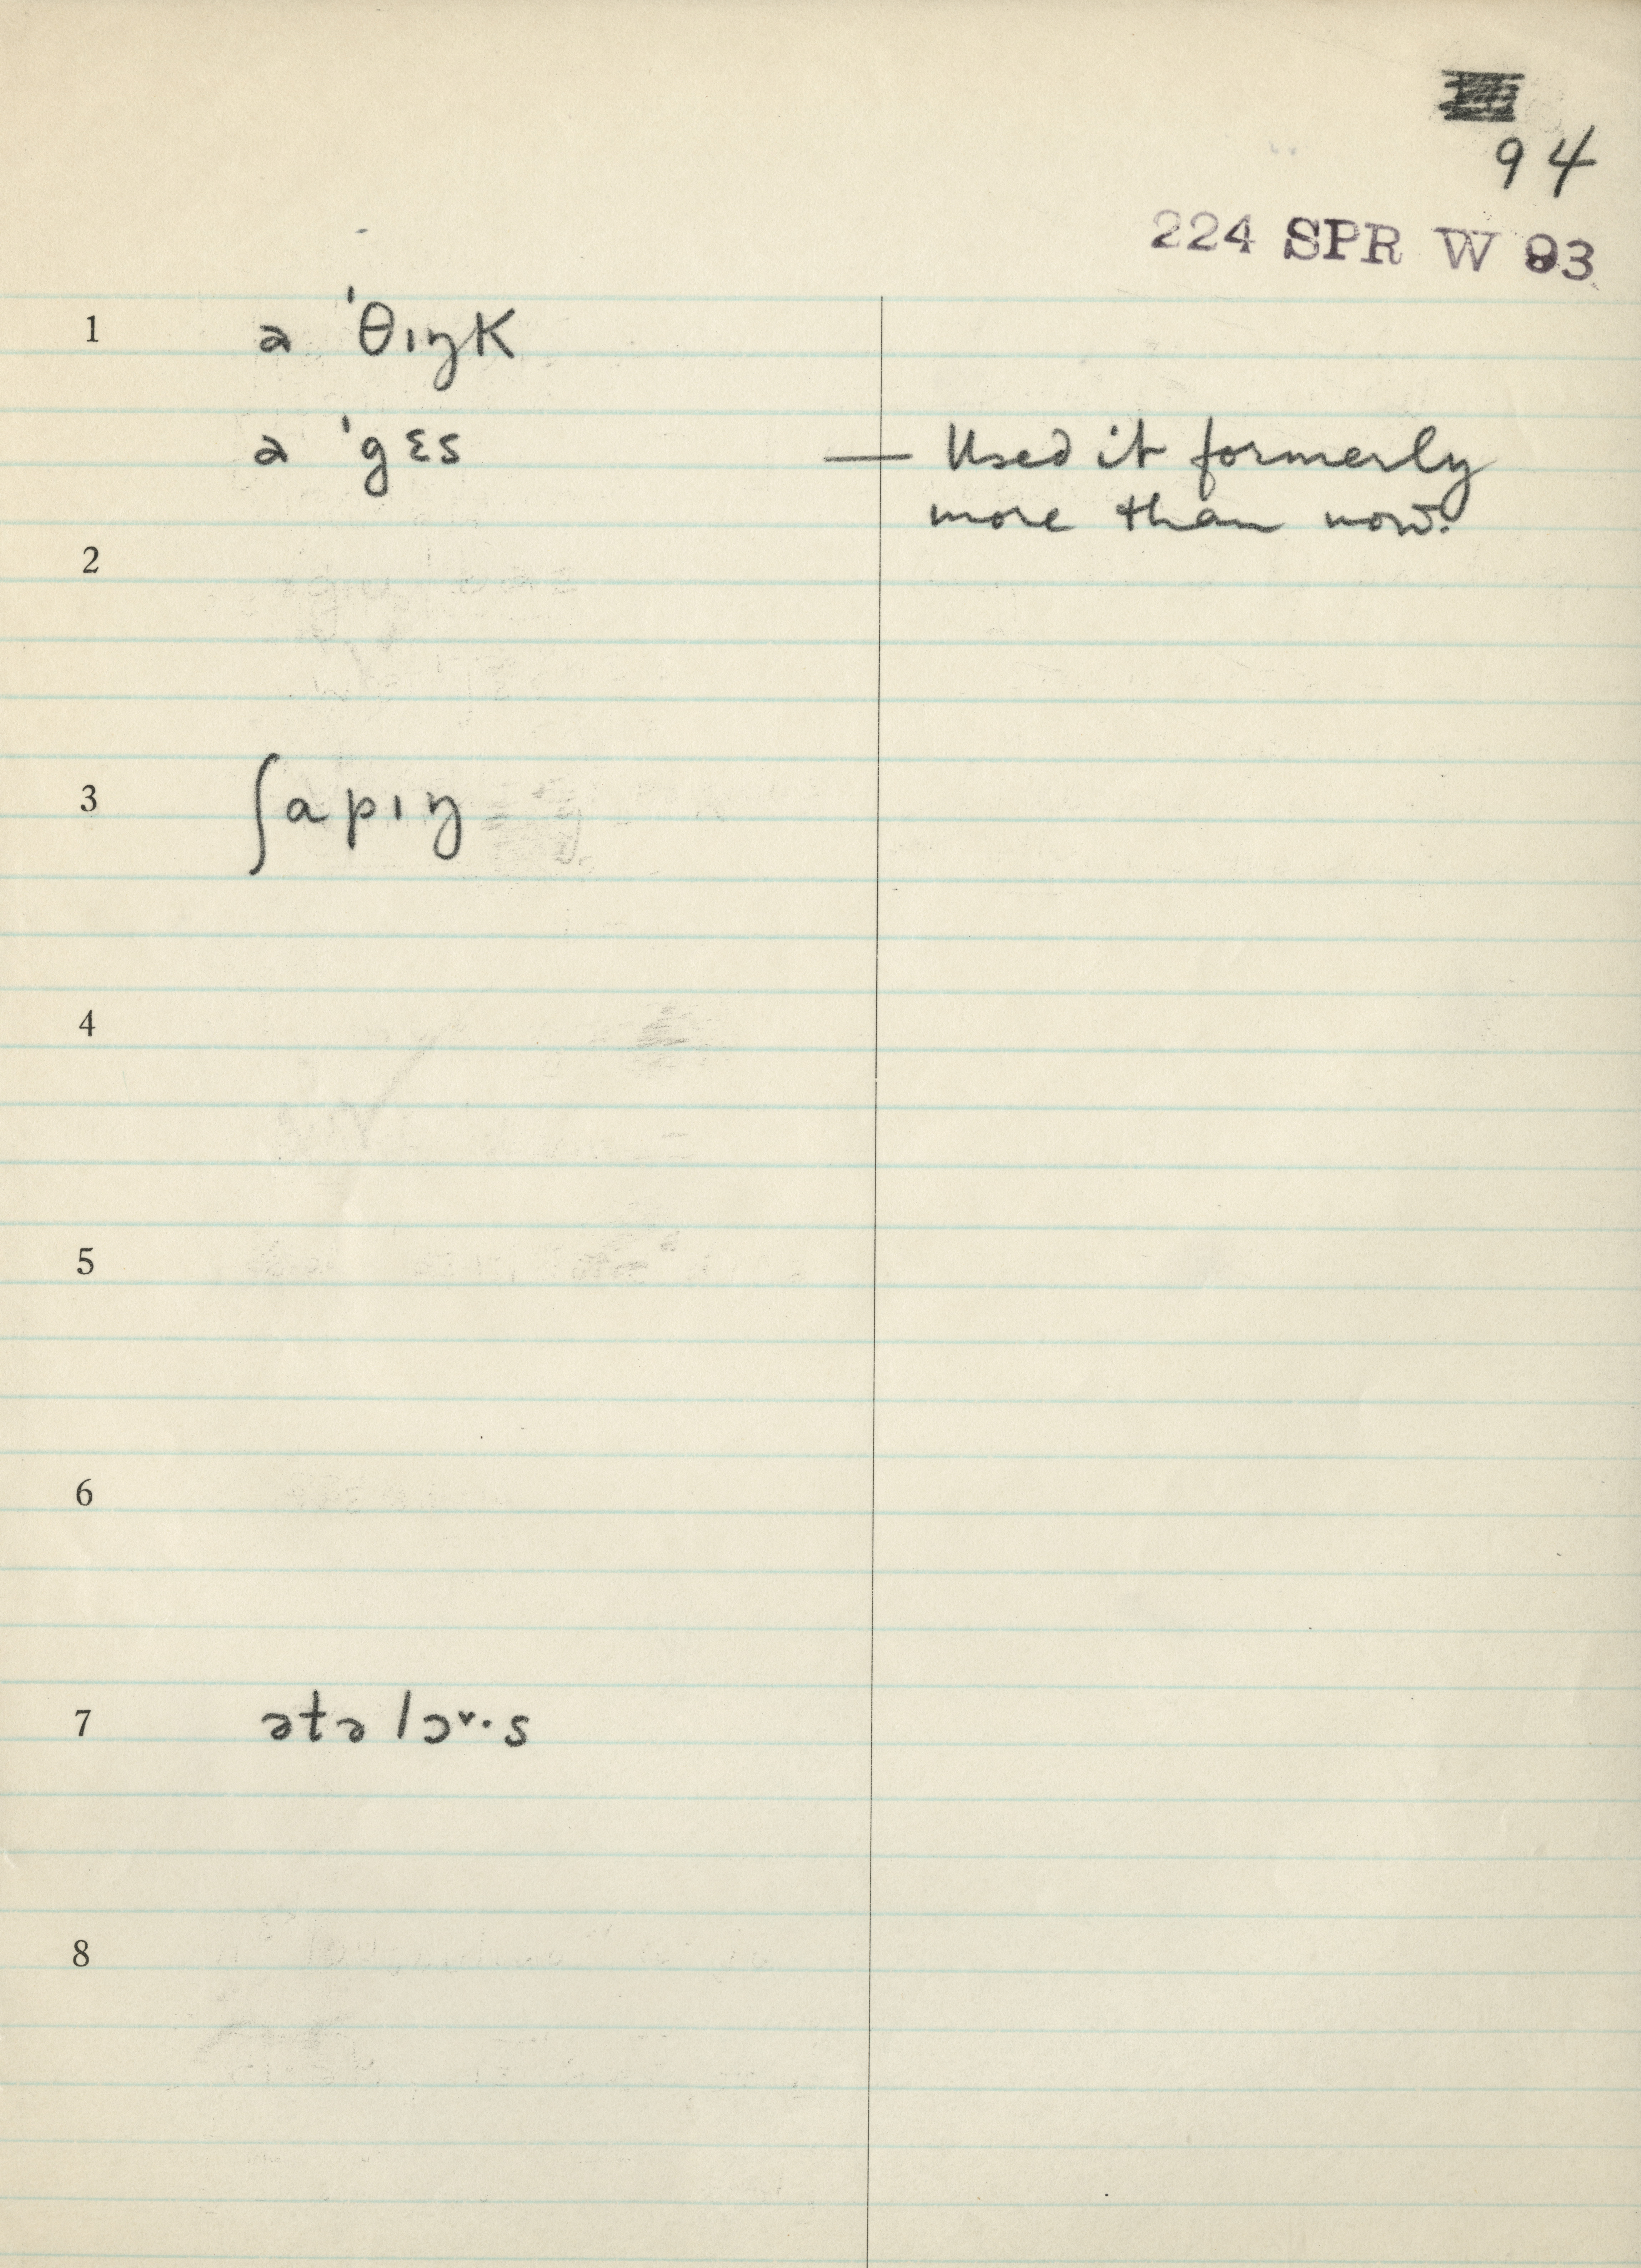 94
224 SPR W 93
1 a ˈθɪŋK
a ˈgɛs — Used it formerly
more than now.
2
3 ʃapɪŋ
4
5
6
7 ətə lɔ˅·s
8